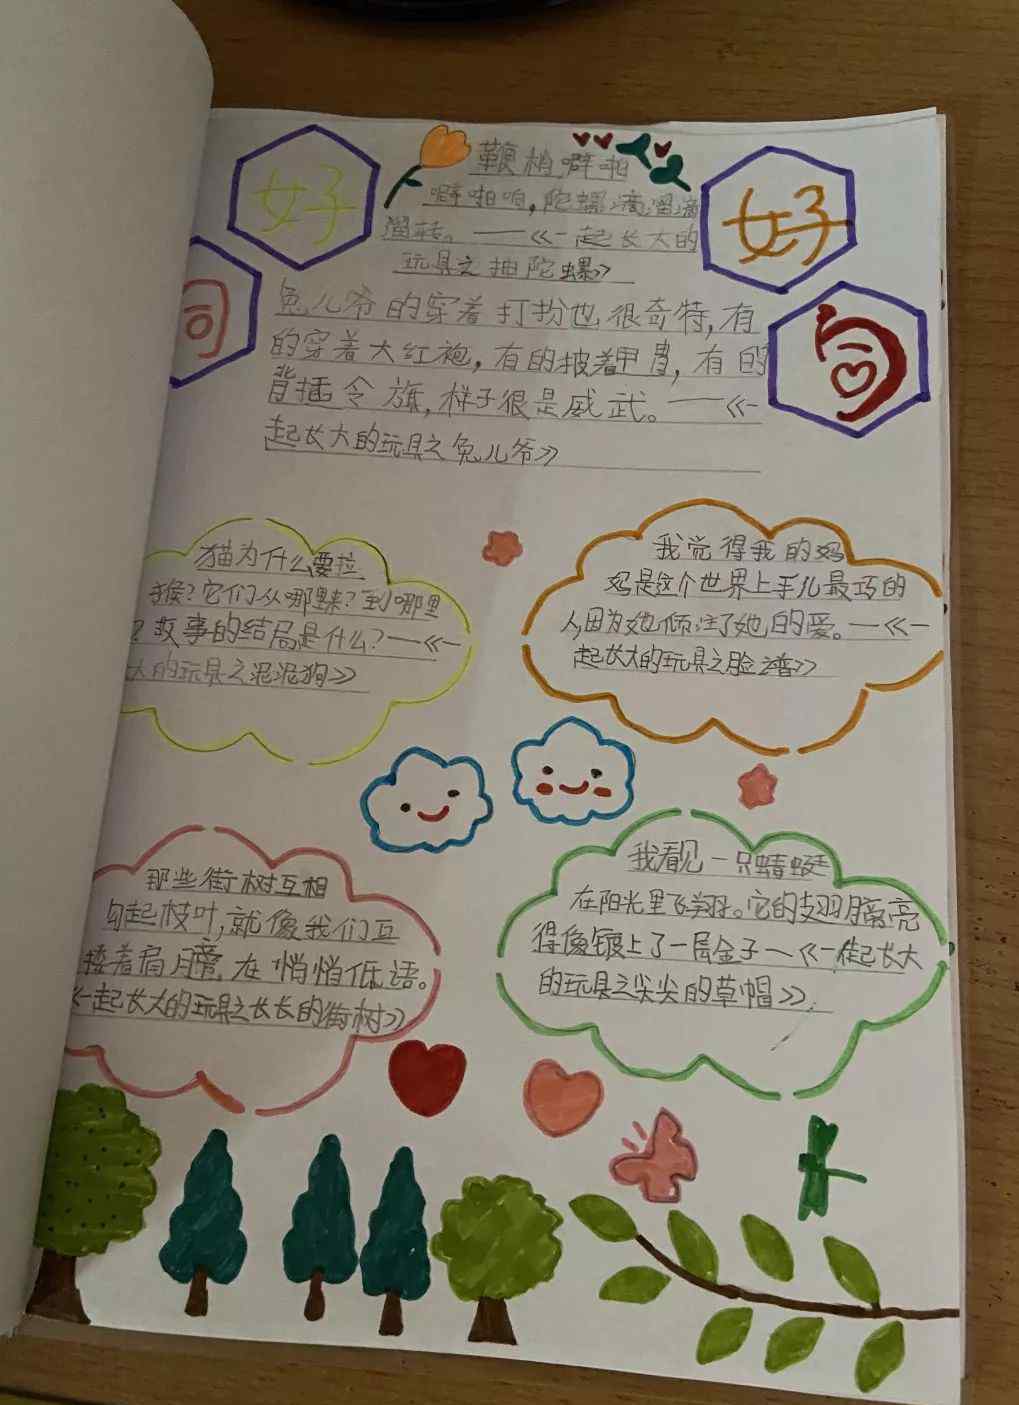 好
好
词
句
鞭梢噼啪
噼啪响，陀螺滴溜滴
溜转。——《一起长大的
玩具之抽陀螺》
兔儿爷的穿着打扮也很奇特，有
的穿着大红袍，有的披着甲胄，有的
背插令旗，样子很是威武。——《一
起长大的玩具之兔儿爷》
猫为什么要拉
猴？它们从哪里来？到哪里
？故事的结局是什么？——《一
大的玩具之泥泥狗》
我觉得我的妈
妈是这个世界上手儿最巧的
人，因为她倾注了她的爱。——《一
起长大的玩具之脸谱》
那些街树互相
勾起枝叶，就像我们互
搂着肩膀，在悄悄低语。
《一起长大的玩具之长长的街树》
我看见一只蜻蜓
在阳光里飞翔。它的翅膀亮
得像镀上了一层金子——《一起长大
的玩具之尖尖的草帽》